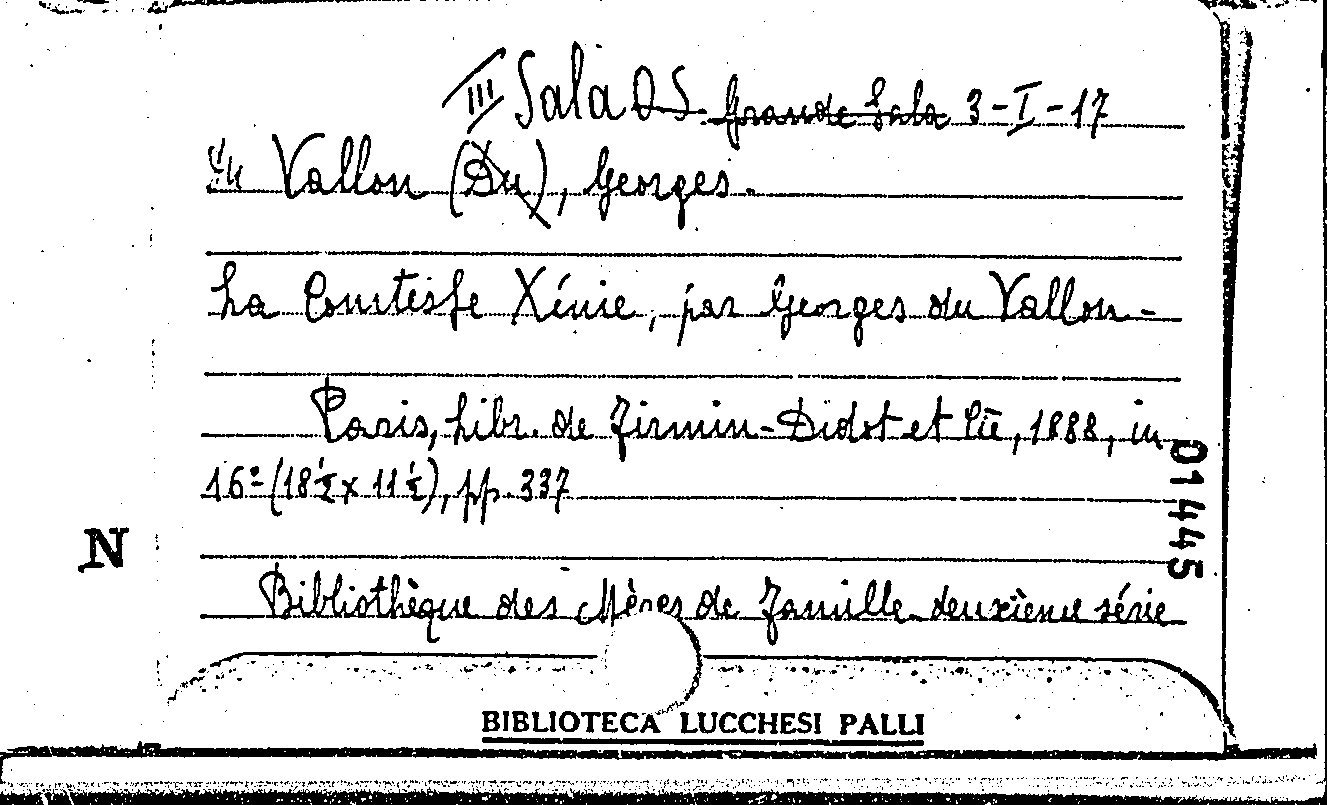 III Sala DS. Grande Sala 3-I-17
Du Vallon (Du), Georges.
La Comtesse Xénie, par Georges du Vallon -
Paris, Libr. de Firmin-Didot et Cie, 1888, in
16º (18½ x 11½), pp. 337
01445
N
Bibliothèque des Mères de Famille deuxième série
BIBLIOTECA LUCCHESI PALLI